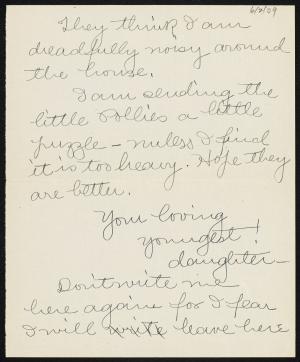 6/2/09
They think I am
dreadfully noisy around
the house.
I am sending the
little Pollies a little
puzzle - unless I find
it is too heavy. Hope they
are better.
Your loving
youngest!
daughter -
Don't write me
here again for I fear
I will write leave here